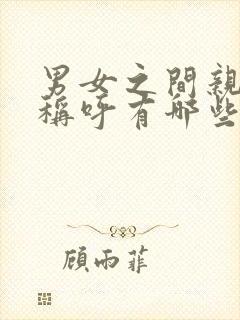 男女之間親
稱呼有哪些
顧雨菲